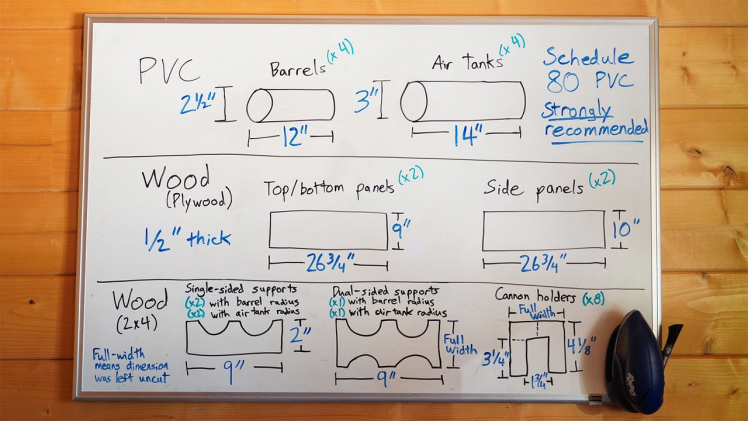 PVC
Barrels (x4)
2½"
12"
Air tanks (x4)
3"
14"
Schedule
80 PVC
Strongly
recommended
Wood
(Plywood)
1/2" thick
Top/bottom panels (x2)
9"
26 3/4"
Side panels (x2)
10"
26 3/4"
Wood
(2x4)
Full-width
means dimension
was left uncut
Single-sided supports
(x2) with barrel radius
(x2) with air tank radius
2"
9"
Dual-sided supports
(x1) with barrel radius
(x1) with air tank radius
Full
Width
9"
Cannon holders (x8)
Full
Width
3 1/4"
4 1/8"
1 3/4"